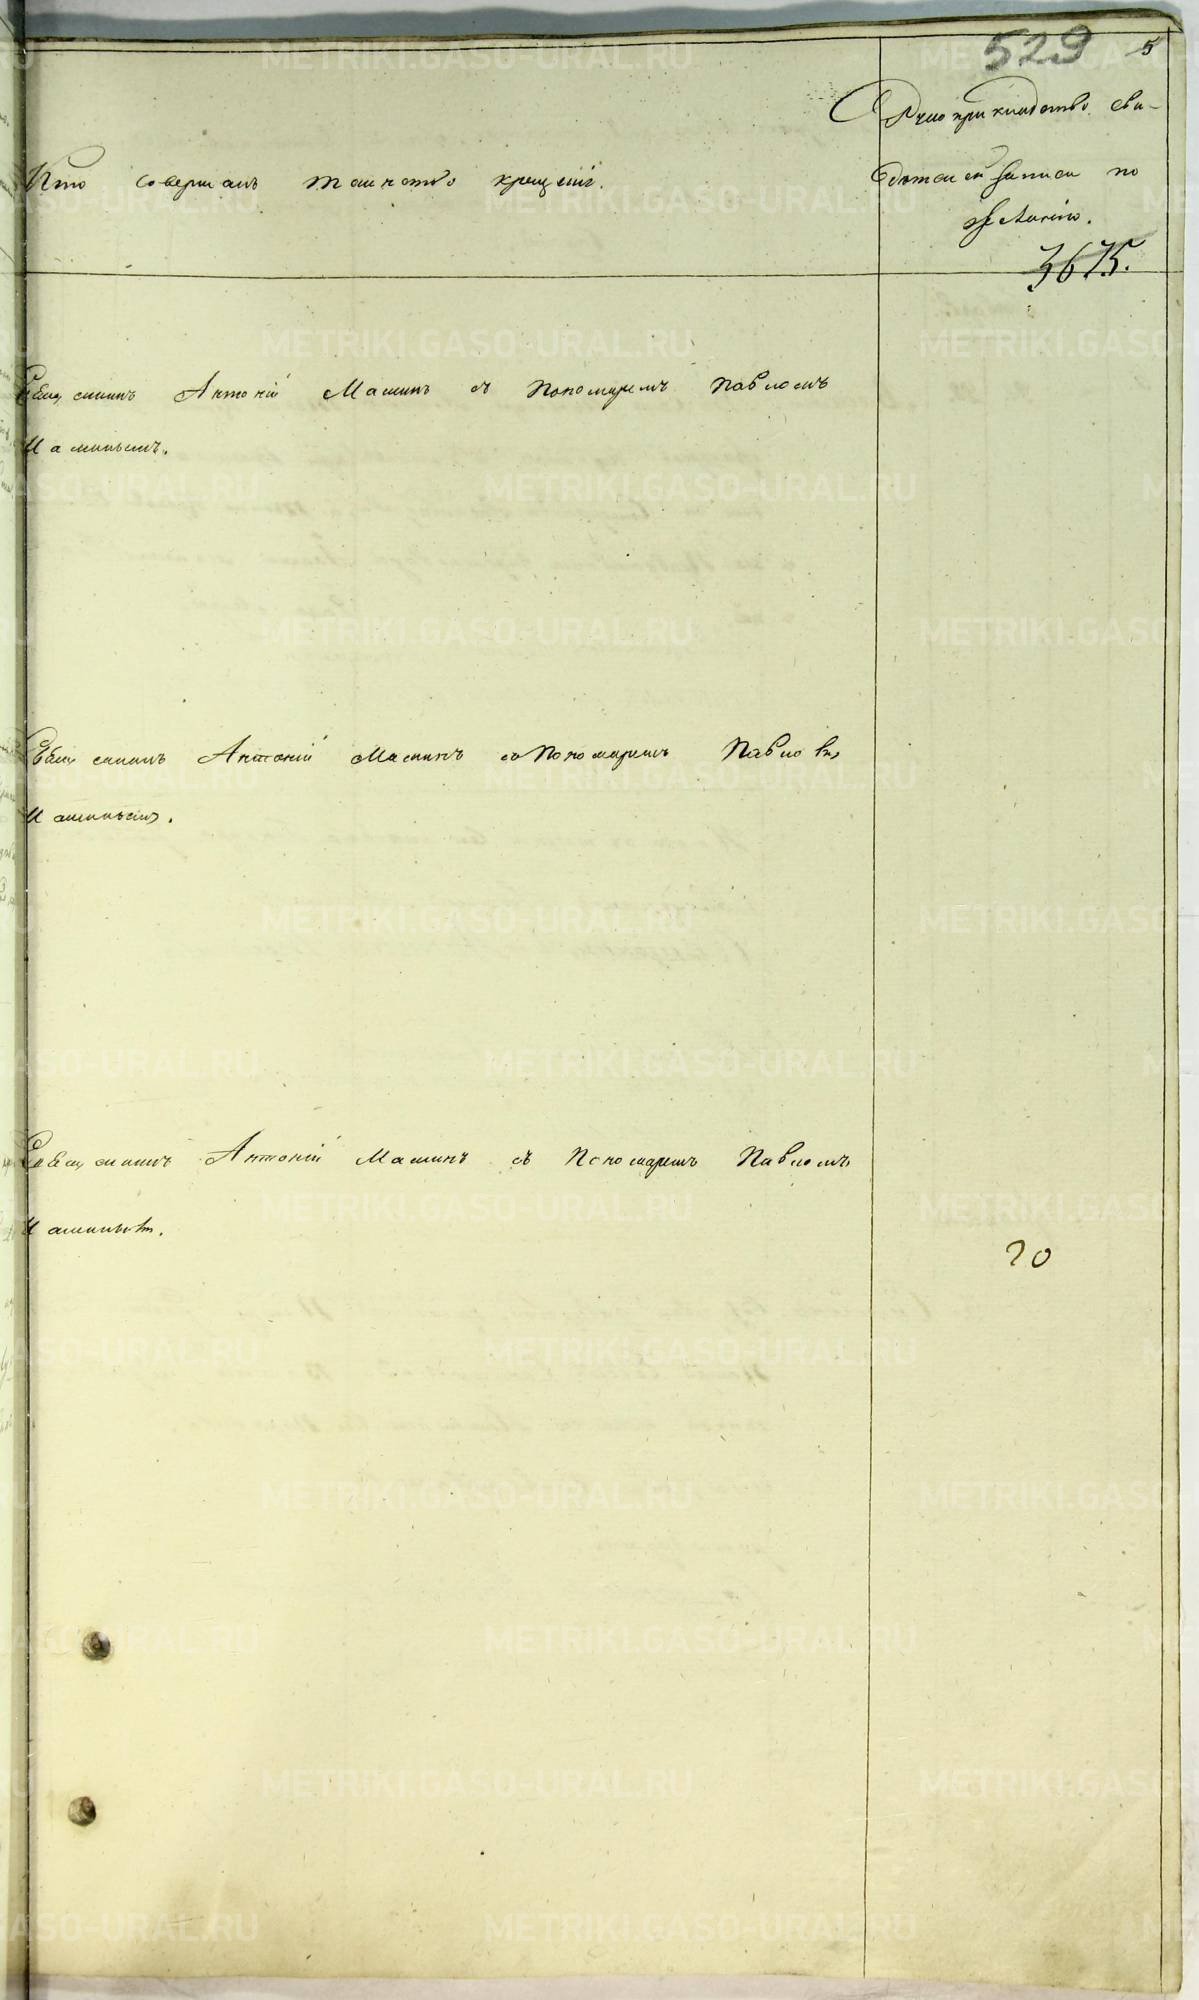 529 5
Рукоприкладство сви-
Кто совершалъ таинство крещенія.
дѣтелей записи по
желанію.
3675.
Священникъ Антоній Маминъ съ Пономаремъ Павломъ
Маминымъ.
Священникъ Антоній Маминъ со Пономаремъ Павломъ
Маминымъ.
Священникъ Антоній Маминъ съ Пономаремъ Павломъ
Маминымъ.
20
METRIKI.GASO-URAL.RU